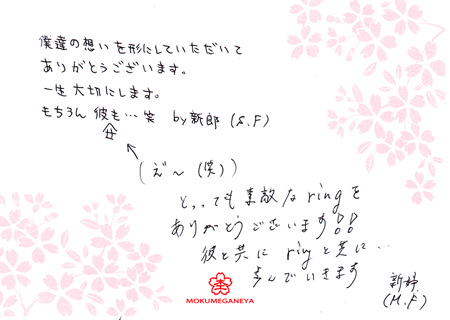 僕達の想いを形にしていただいて
ありがとうございます。
一生大切にします。
もちろん 彼も…笑 by新郎 (S.F)
女
(え〜 (笑))
とっても素敵なringを
ありがとうございます!!
彼と共に ringと共に…
歩んでいきます
新婦
(M.F)
MOKUMEGANEYA